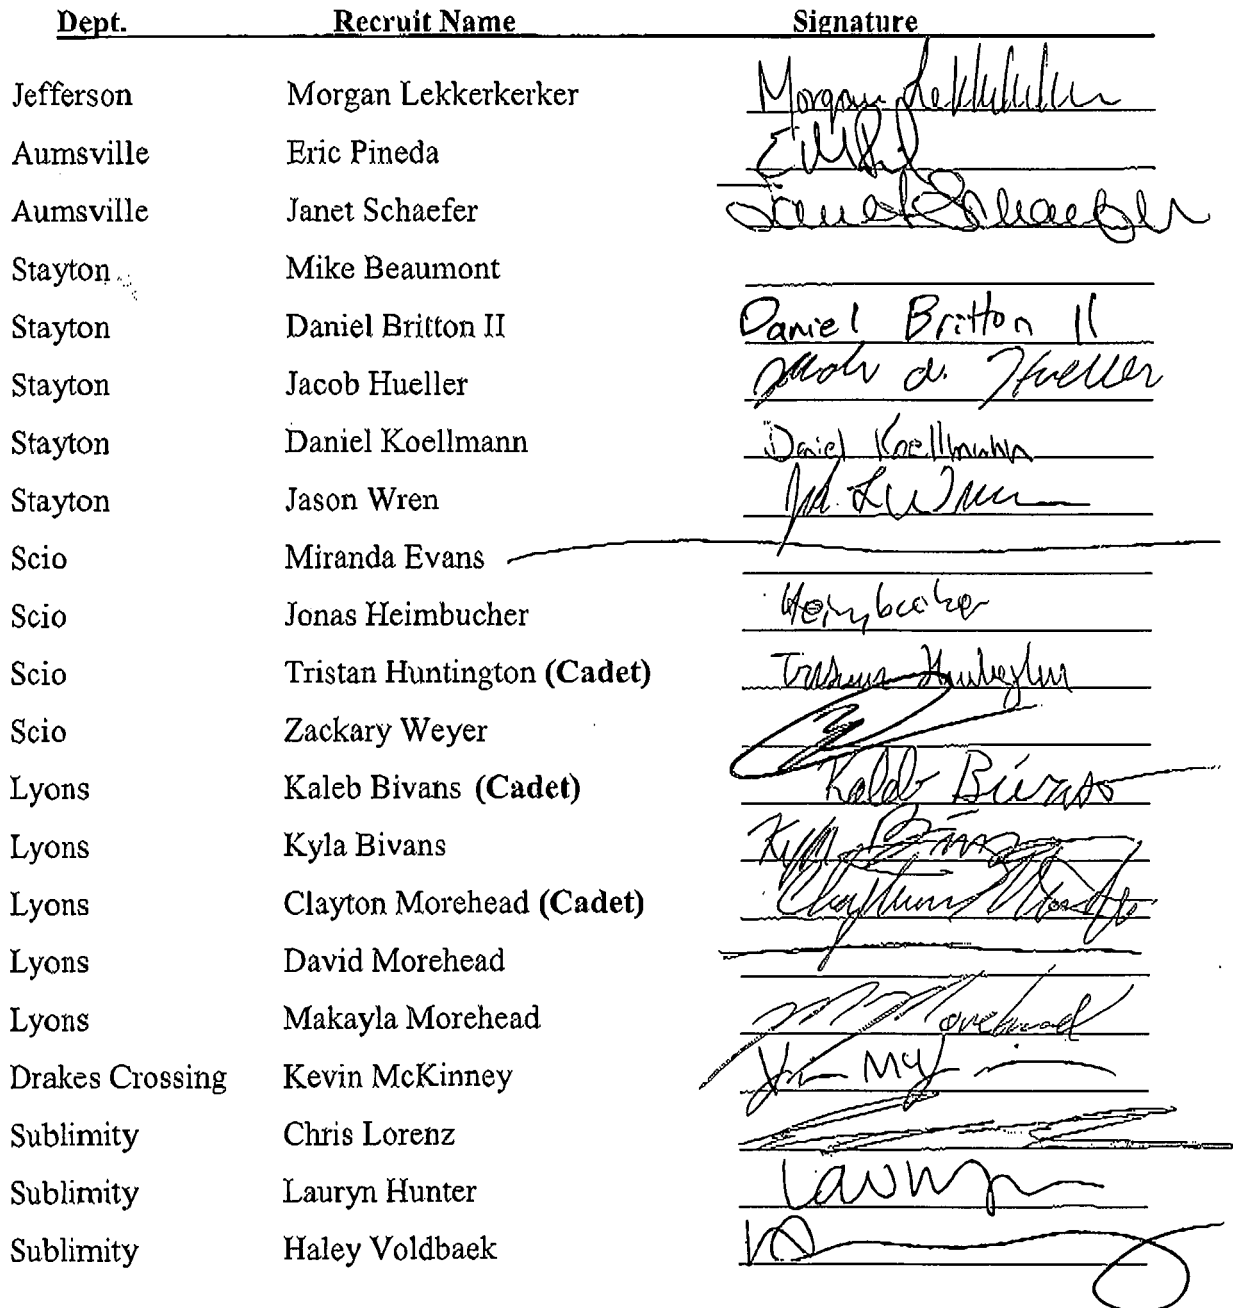 Dept. Recruit Name Signature
Jefferson Morgan Lekkerkerker Morgan Lekkerkerker
Aumsville Eric Pineda
Aumsville Janet Schaefer Janet Schaefer
Stayton Mike Beaumont
Stayton Daniel Britton II Daniel Britton II
Stayton Jacob Hueller Jacob d. Hueller
Stayton Daniel Koellmann Daniel Koellmann
Stayton Jason Wren
Scio Miranda Evans
Scio Jonas Heimbucher Heimbucher
Scio Tristan Huntington (Cadet) Tristan Huntington
Scio Zackary Weyer
Lyons Kaleb Bivans (Cadet) Kaleb Bivans
Lyons Kyla Bivans Kyla Bivans
Lyons Clayton Morehead (Cadet) Clayton Morehead
Lyons David Morehead
Lyons Makayla Morehead M Morehead
Drakes Crossing Kevin McKinney
Sublimity Chris Lorenz
Sublimity Lauryn Hunter Lauryn
Sublimity Haley Voldbaek